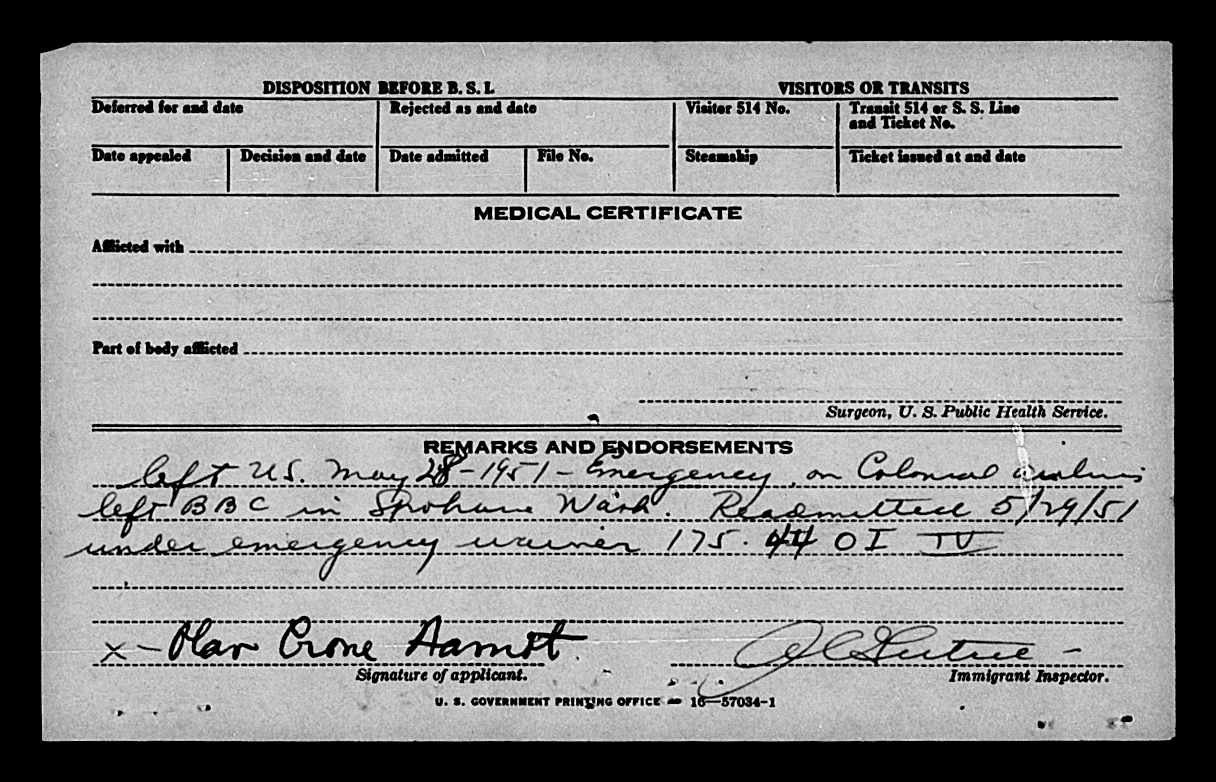 DISPOSITION BEFORE B. S. I.
VISITORS OR TRANSITS
Deferred for and date
Rejected as and date
Visitor 514 No.
Transit 514 or S. S. Line
and Ticket No.
Date appealed
Decision and date
Date admitted
File No.
Steamship
Ticket issued at and date
MEDICAL CERTIFICATE
Afflicted with
Part of body afflicted
Surgeon, U. S. Public Health Service.
REMARKS AND ENDORSEMENTS
left US. May 28-1951 - Emergency, on Colonial airlines
left BBC in Spokane Wash. Readmitted 5/29/51
under emergency waiver 175. 44 OI IV
x - Olav Crone Aamot
Signature of applicant.
Immigrant Inspector.
U. S. GOVERNMENT PRINTING OFFICE 16—57034-1